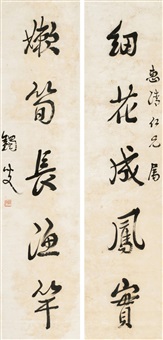 惠清仁兄屬
細花成鳳實
嫩筍長漁竿